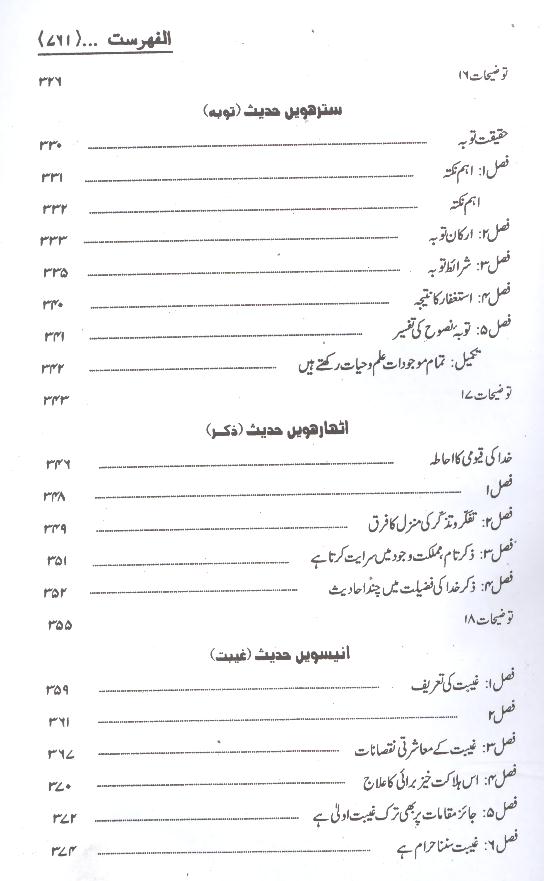 الفهرست ...﴿۷۶۱﴾
توضیحات ۱۶ ۳۲۶
سترھویں حدیث (توبہ)
حقیقت توبہ ۳۳۰
فصل ۱: اہم نکتہ ۳۳۱
اہم نکتہ ۳۳۲
فصل ۲: ارکان توبہ ۳۳۳
فصل ۳: شرائط توبہ ۳۳۵
فصل ۴: استغفار کا نتیجہ ۳۴۰
فصل ۵: توبۂ نصوح کی تفسیر ۳۴۱
تکمیل: تمام موجودات علم و حیات رکھتے ہیں ۳۴۲
توضیحات ۱۷ ۳۴۳
اٹھارھویں حدیث (ذکر)
خدا کی قیومی کا احاطہ ۳۴۶
فصل ۱ ۳۴۸
فصل ۲: تفکّر و تذکّر کی منزل کا فرق ۳۴۹
فصل ۳: ذکر تام، مملکت وجود میں سرایت کرتا ہے ۳۵۱
فصل ۴: ذکر خدا کی فضیلت میں چند احادیث ۳۵۲
توضیحات ۱۸ ۳۵۵
انیسویں حدیث (غیبت)
فصل ۱: غیبت کی تعریف ۳۵۹
فصل ۲ ۳۶۱
فصل ۳: غیبت کے معاشرتی نقصانات ۳۶۷
فصل ۴: اس ہلاکت خیز برائی کا علاج ۳۷۰
فصل ۵: جائز مقامات پر بھی ترک غیبت اولیٰ ہے ۳۷۲
فصل ۶: غیبت سننا حرام ہے ۳۷۴